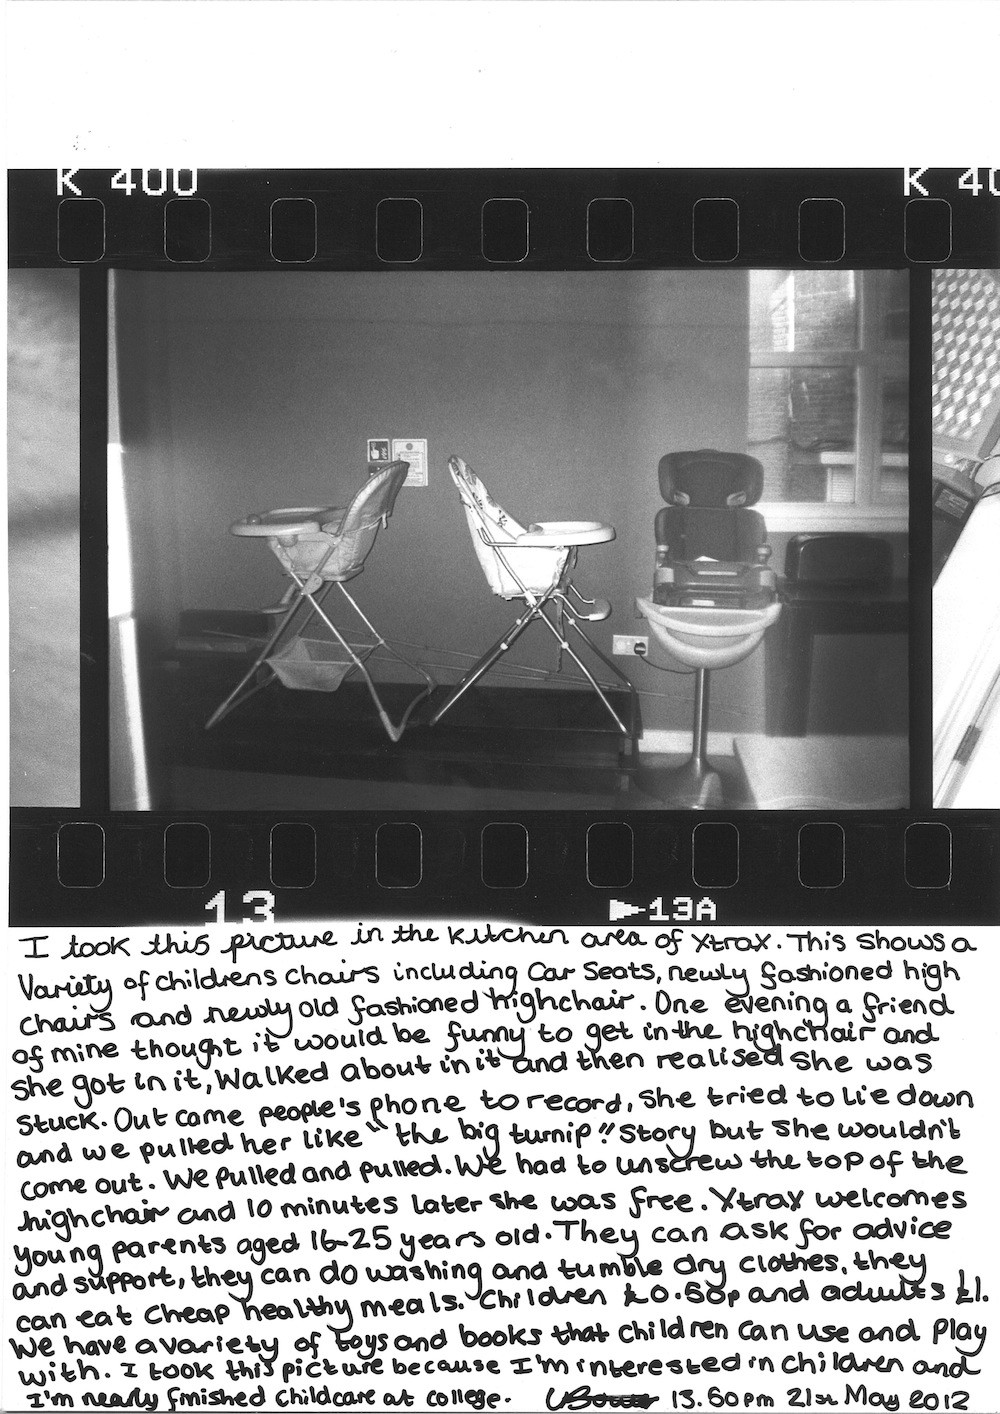 K 400 K 40
13 13A
I took this picture in the kitchen area of Xtrax. This shows a
Variety of childrens chairs including Car Seats, newly fashioned high
chairs and newly old fashioned highchair. One evening a friend
of mine thought it would be funny to get in the highchair and
she got in it, walked about in it and then realised she was
stuck. Out came people's phone to record, she tried to lie down
and we pulled her like "the big turnip" story but she wouldn't
come out. We pulled and pulled. We had to unscrew the top of the
highchair and 10 minutes later she was free. Xtrax welcomes
young parents aged 16-25 years old. They can ask for advice
and support, they can do washing and tumble dry clothes, they
can eat cheap healthy meals. Children £0.50p and adults £1.
We have a variety of toys and books that children can use and play
with. I took this picture because I'm interested in children and
I'm nearly finished childcare at college. 13.50pm 21st May 2012